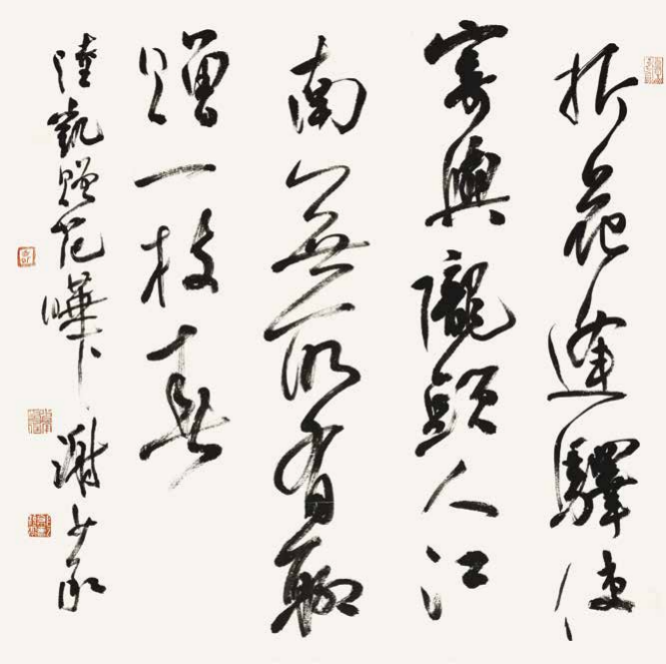 折花逢驛使
寄與隴頭人江
南無所有聊
贈一枝春
陸凱贈范曄 謝少承